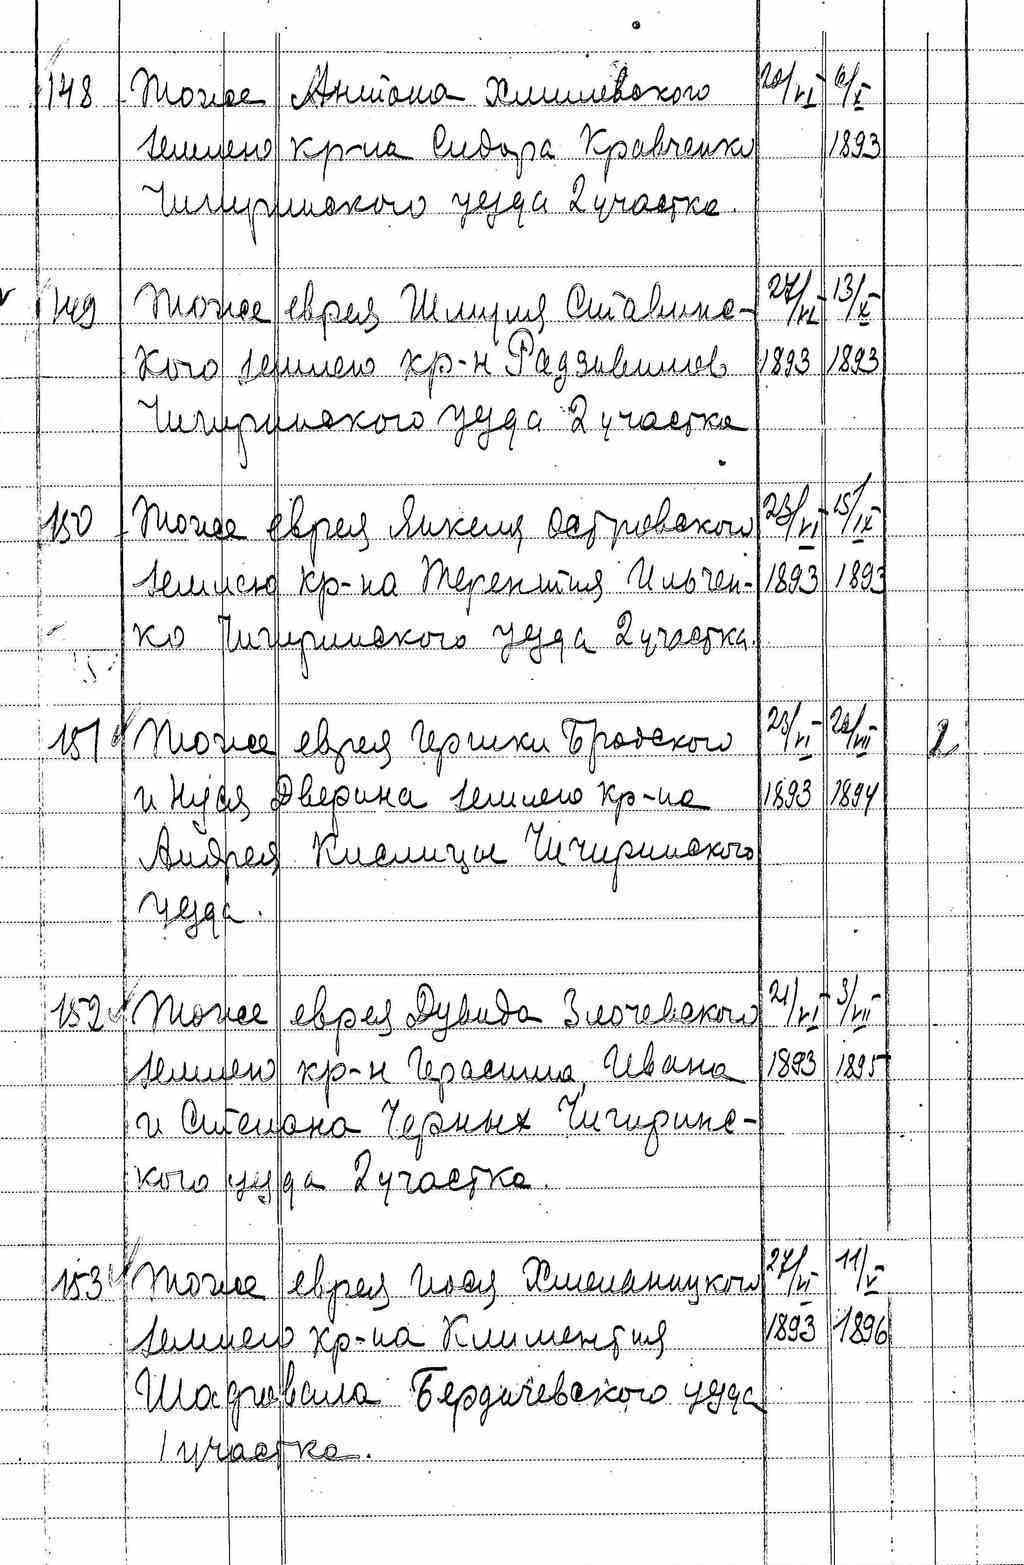 148 Тоже Антона Хмилевского 20/VI 6/X
землею кр-на Сидора Кравченко 1893
Чигиринского уезда 2 участка.
149 Тоже еврея Шмуля Ставинс- 27/VI 13/X
кого землею кр-н Радзивилов 1893 1893
Чигиринского уезда 2 участка
150 Тоже еврея Янкеля Островского 23/VI 15/IX
землею кр-на Терентия Ильчен- 1893 1893
ко Чигиринского уезда 2 участка.
151 Тоже еврея Гершки Бродского 23/VI 20/VII 2
и Нуся Дверина землею кр-на 1893 1894
Андрея Кислицы Чигиринского
уезда.
152 Тоже еврея Дувида Злочевского 21/VI 3/VII
землею кр-н Герасима, Ивана 1893 1895
и Степана Черных Чигиринс-
кого уезда 2 участка.
153 Тоже еврея Иося Хмельницкого 27/VI 11/V
землею кр-на Климентия 1893 1896
Бердичевского уезда
1 участка.